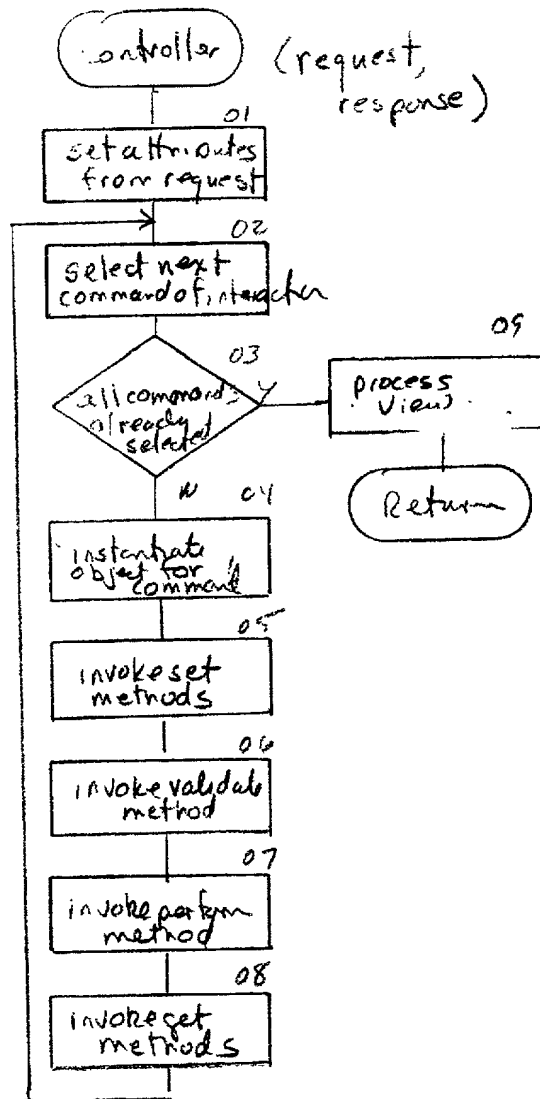 Controller
(request,
response)
01
set attributes
from request
02
select next
command of interaction
03
all commands
already
selected
Y
09
process
view
Return
N
04
instantiate
object for
command
05
invoke set
methods
06
invoke validate
method
07
invoke perform
method
08
invoke get
methods